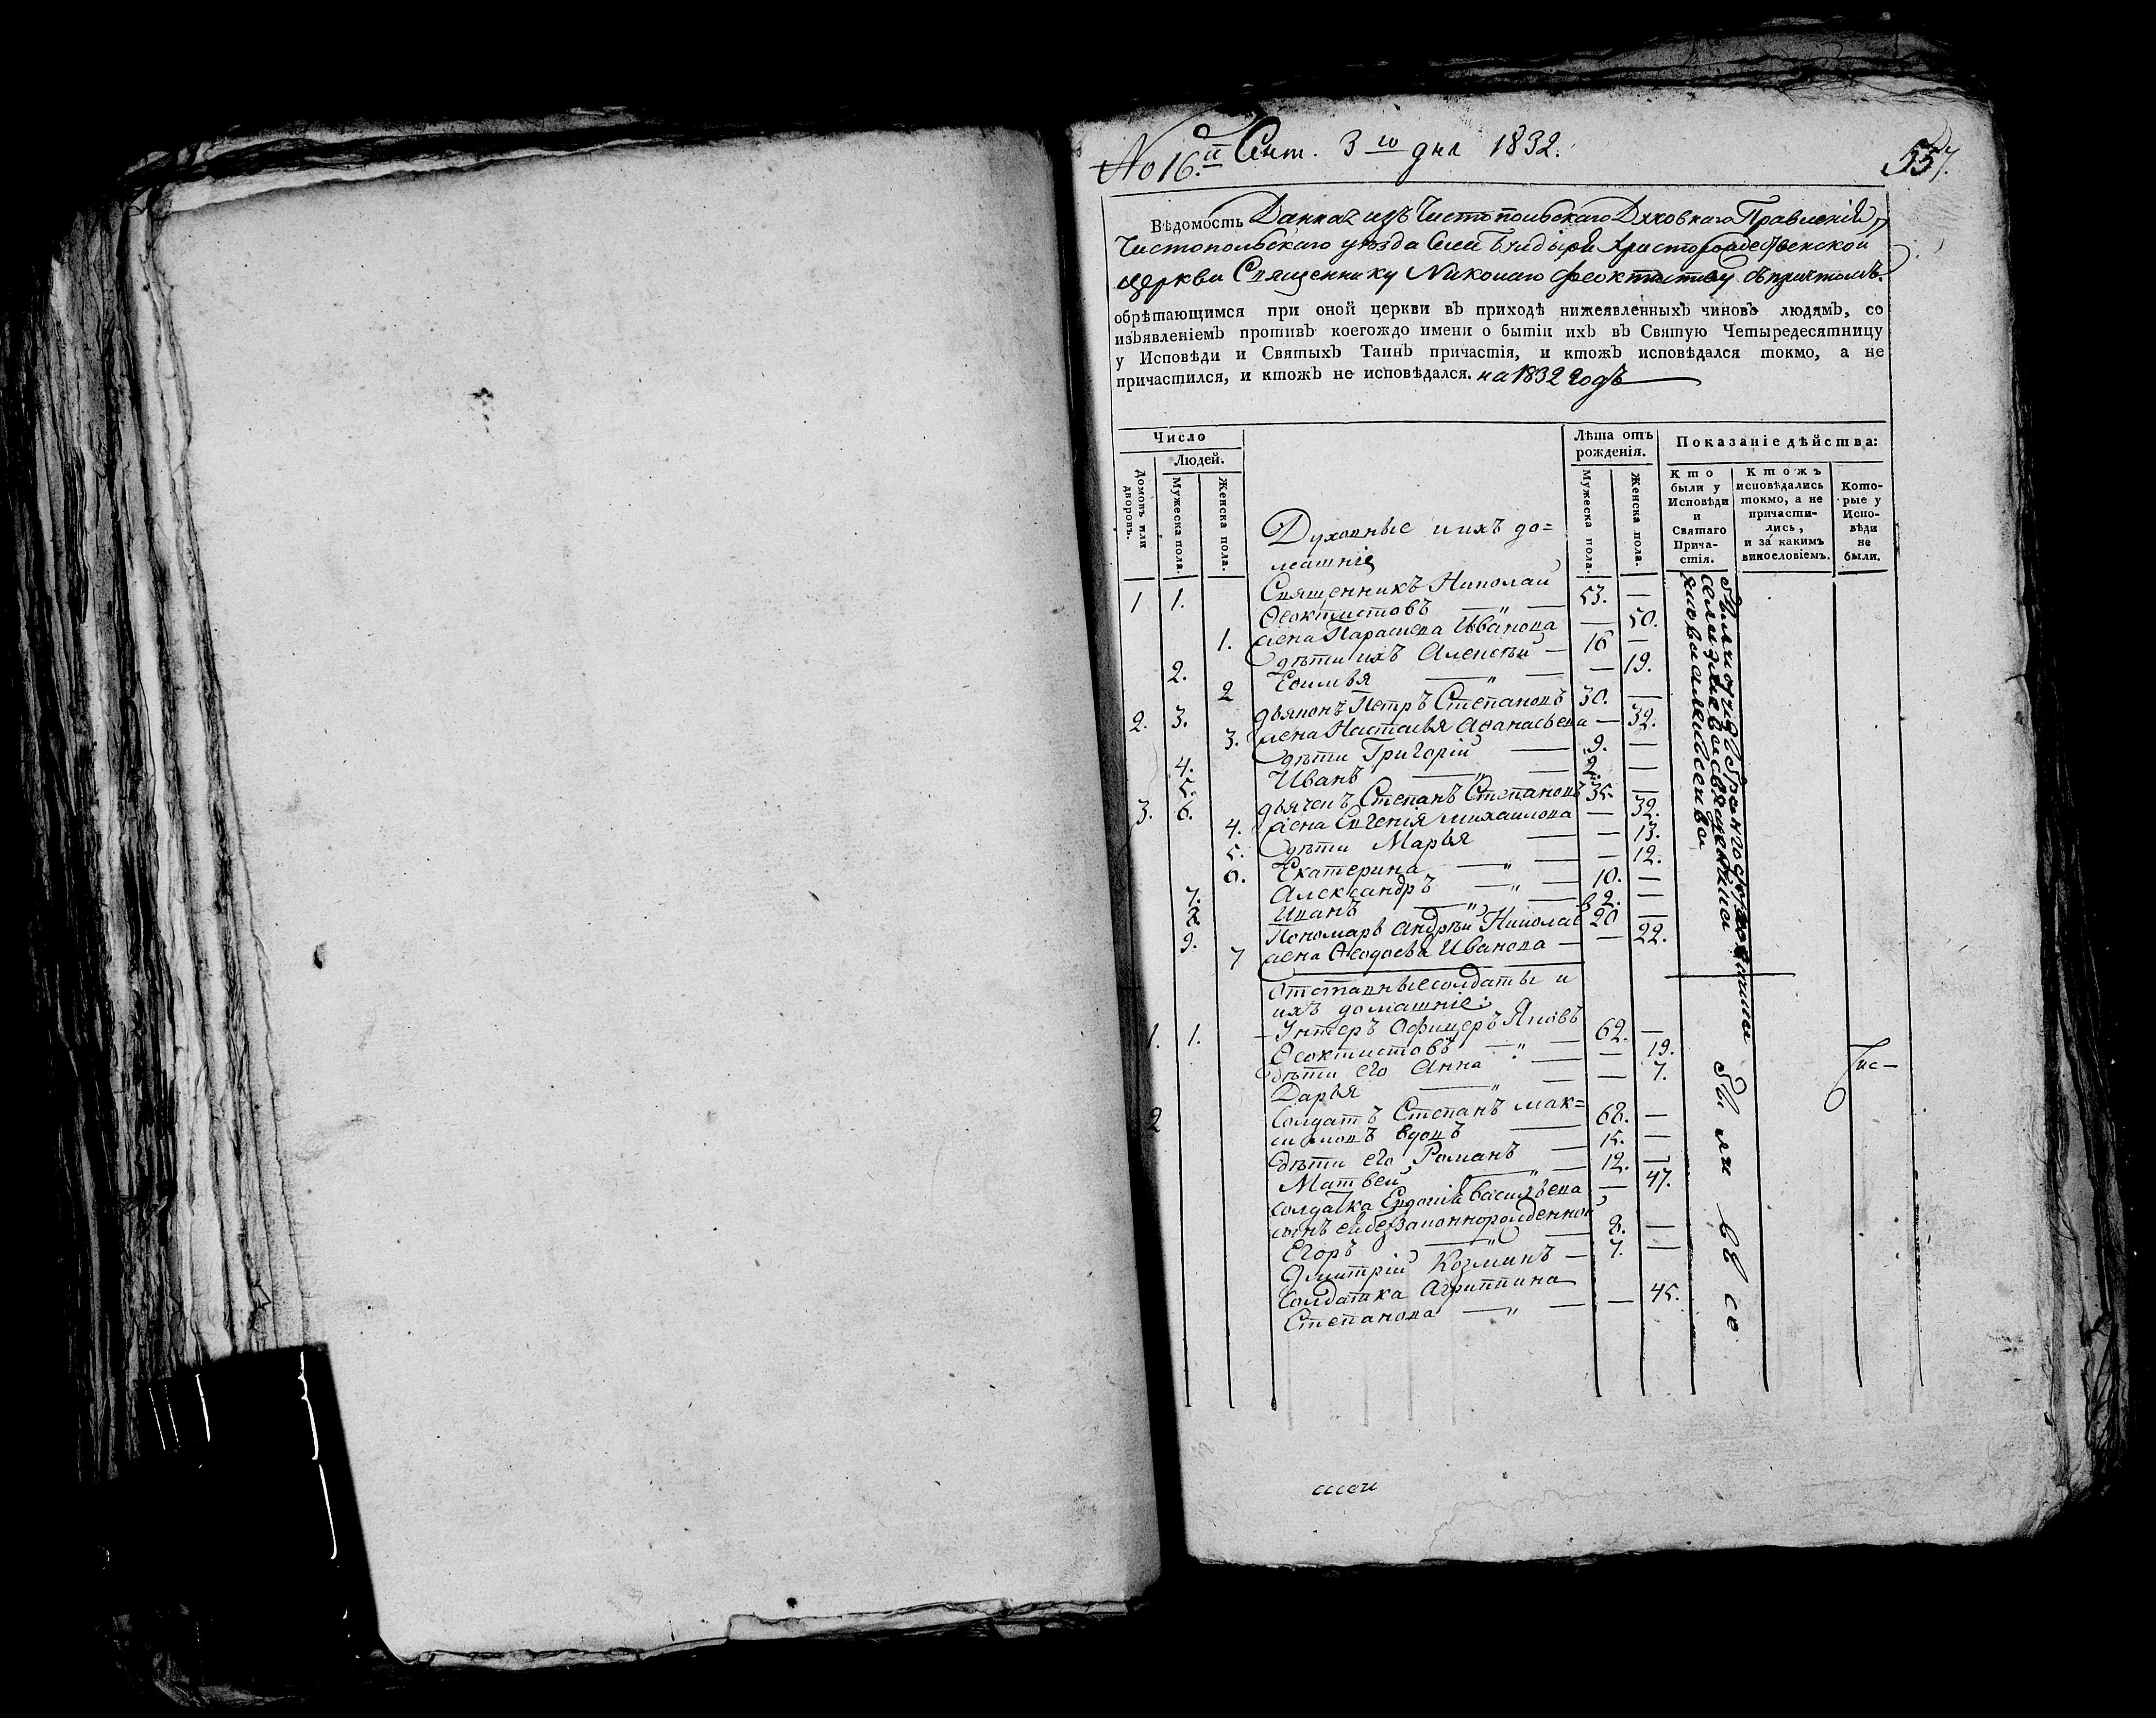 No 16.й Сент. 3го дня 1832.
557.
Вѣдомость Данная изъ Чистопольскаго Духовнаго Правленія
Чистопольскаго уѣзда Христорождественской
церкви Священнику Николаю Феоктистову съ причтомъ.
обрѣтающимся при оной церкви въ приходѣ нижеявленныхъ чиновъ людямъ, со
изъявленіемъ противъ коегождо имени о бытіи ихъ въ Святую Четыредесятницу
у Исповѣди и Святыхъ Таинъ причастія, и ктожъ исповѣдался токмо, а не
причастился, и ктожъ не исповѣдался. на 1832 годъ
Число
Людей.
Домовъ или дворовъ.
Мужеска пола.
Женска пола.
Лѣта отъ рожденія.
Мужеска пола.
Женска пола.
Показаніе дѣйства:
Кто были у Исповѣди и Святаго Причастія.
Ктожъ исповѣдались токмо, а не причастились, и за какимъ винословіемъ.
Которые у Исповѣди не были.
Духовные и ихъ до=
машніе
1 1. Священникъ Николай
Ѳеоктистовъ — " — 53. —
1. жена Парасковa Иванова — 50.
2. дѣти ихъ Алексѣй — 16 —
2 — " — — 19.
2. 3. дьяконъ Петръ Степановъ 30. —
3. жена Настасья Аѳанасьева — 32.
4. дѣти Григорій — 9. —
5. Иванъ — " — 2. —
3. 6. дьячекъ Степанъ Степановъ 35. —
4. жена Евгенія Михаилова — 32.
5. дѣти Марья — — 13.
6. Екатерина — " — — 12.
7. Александръ — " — 10. —
8 Иванъ — " — 2. —
9. Пономарь Андрѣй Николаев 20 —
7 жена Ѳеодосья Иванова — — 22.
Отставные солдаты и
ихъ домашніе:
1. 1. Унтеръ Офицеръ Яковъ
Ѳеоктистовъ — " — 62. —
дѣти его Анна — — 19.
Дарья — " — — 7.
2 Солдатъ Степанъ Мак=
симовъ вдовъ — 68. —
дѣти его Романъ — 15. —
Матвей — " — 12. —
солдатка Евдокія Васильева — 47.
сынъ ея беззаконнорожденной
Егоръ — " — 8. —
Дмитрій Козминъ — 7. —
Солдатка Агриппина
Степанова — " — — 45.